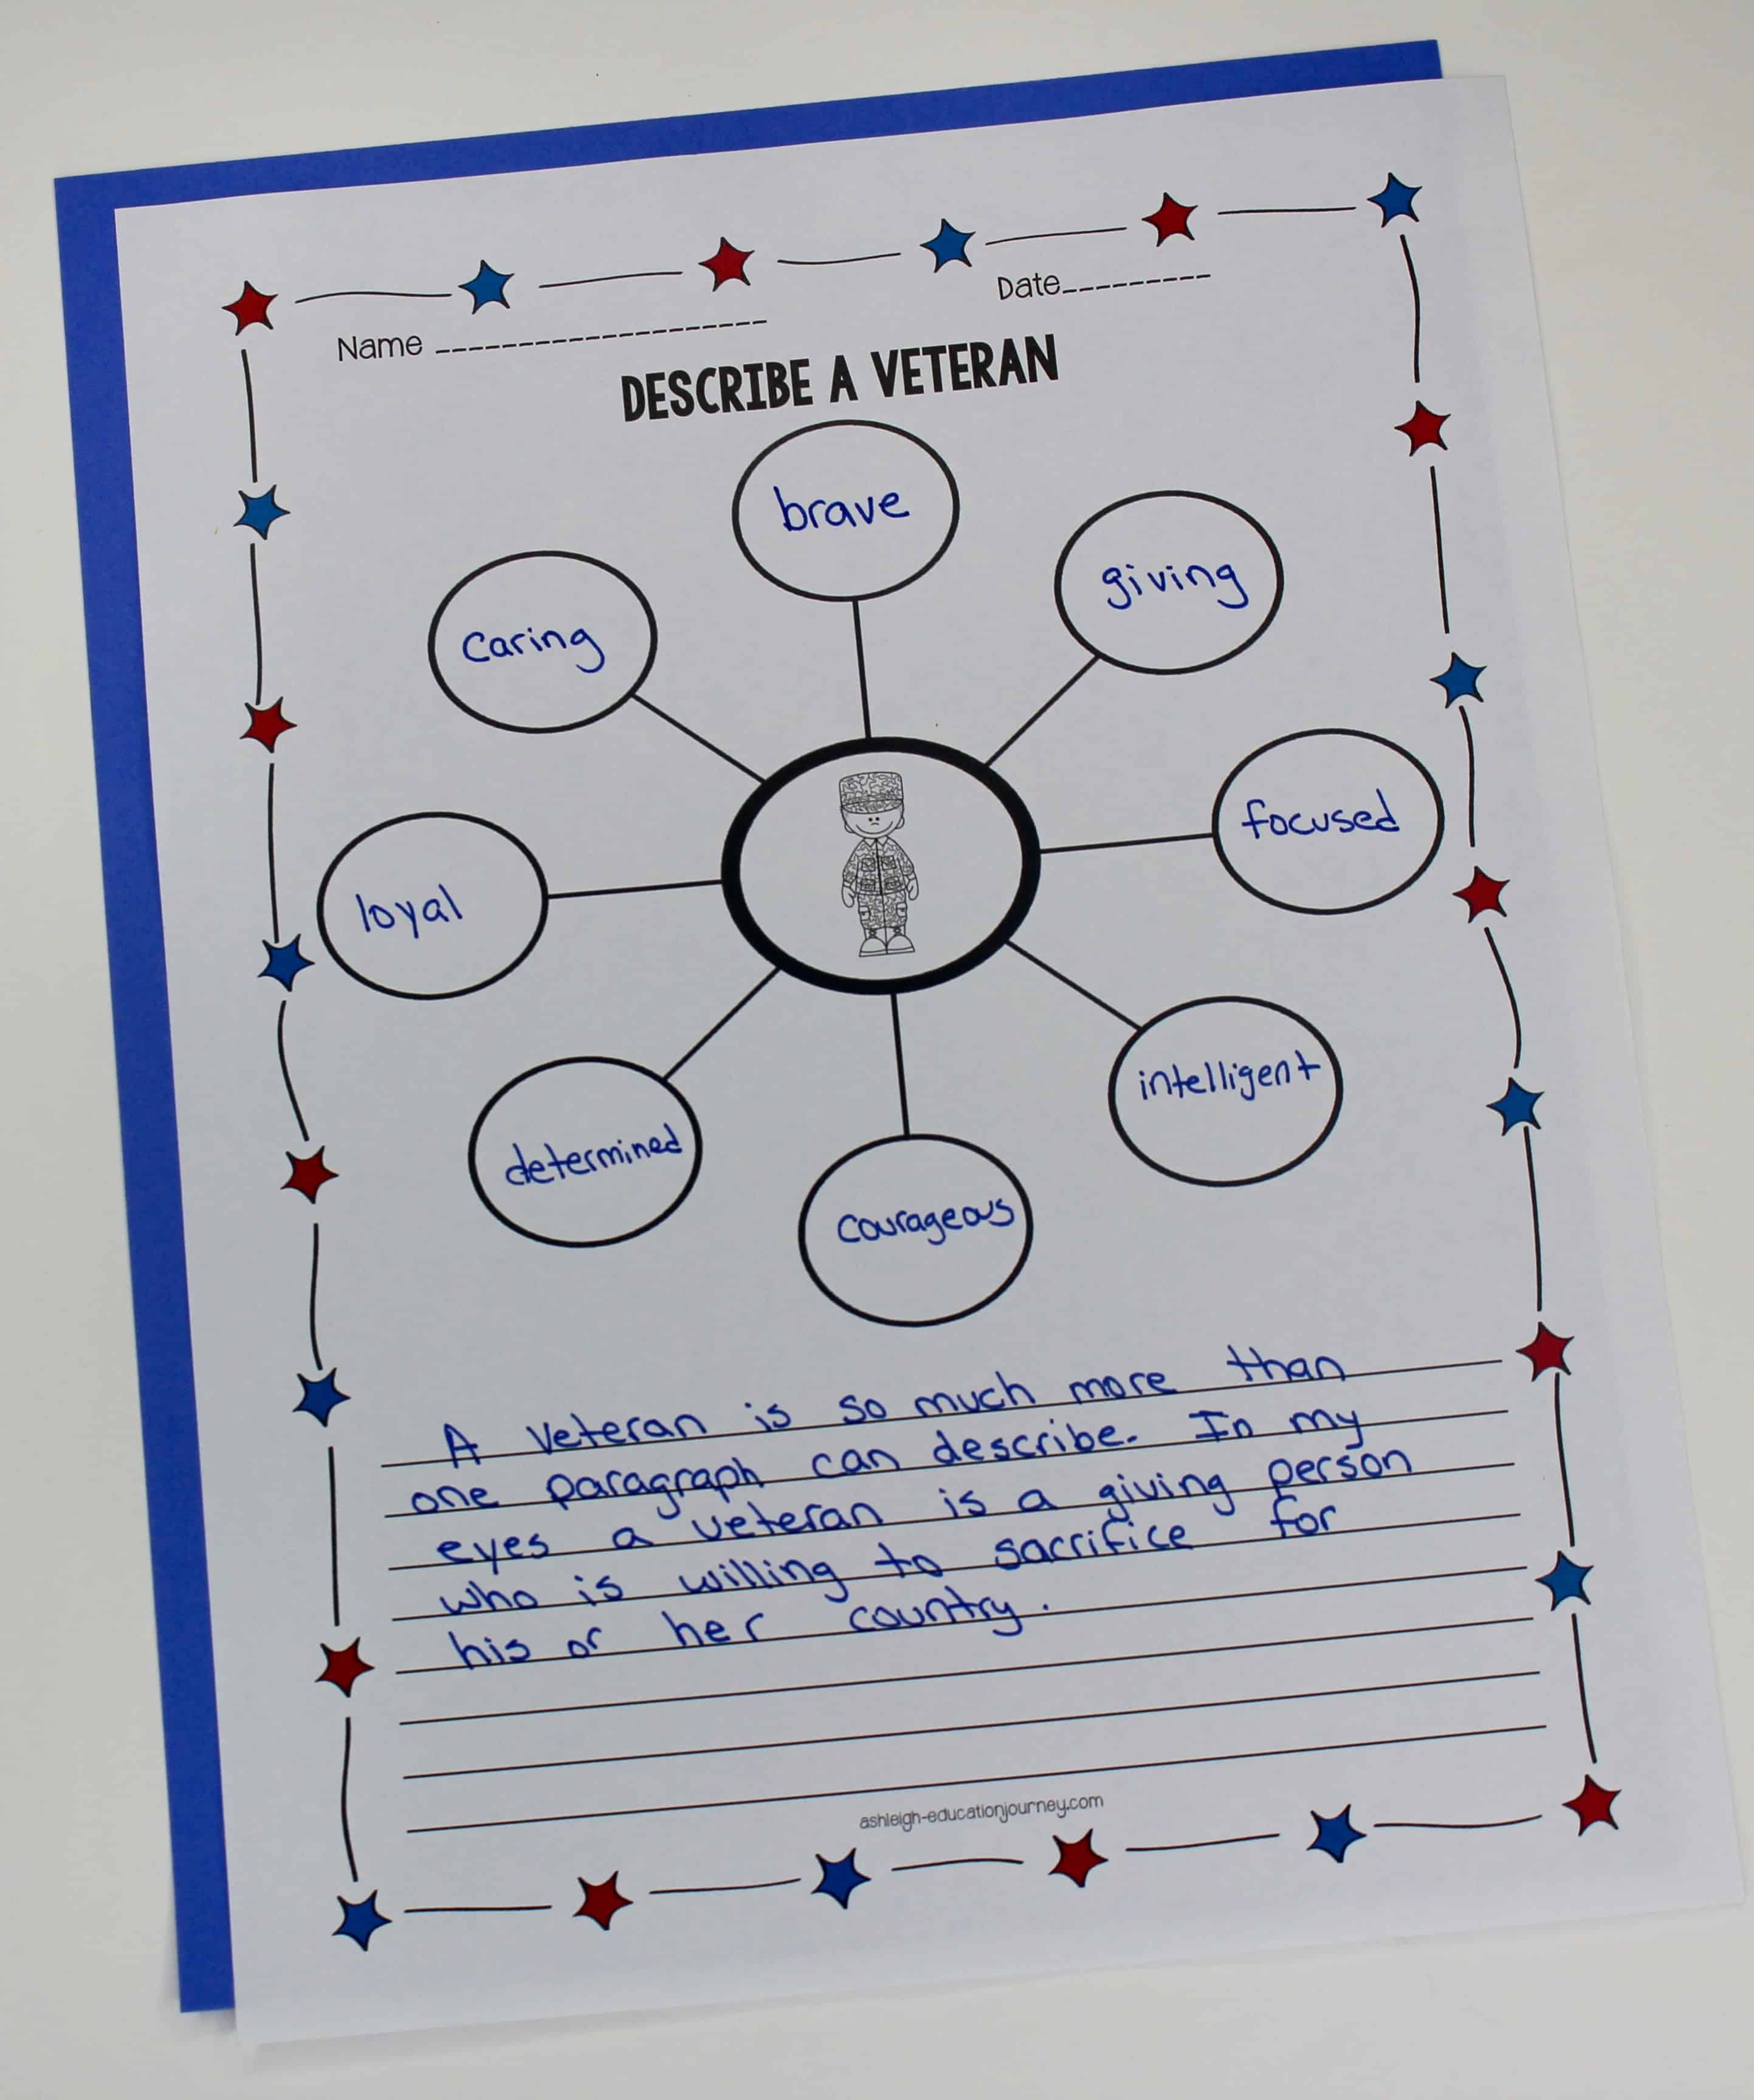 Name
Date
DESCRIBE A VETERAN
brave
giving
caring
focused
loyal
intelligent
determined
courageous
A veteran is so much more than
one paragraph can describe. In my
eyes a veteran is a giving person
who is willing to sacrifice for
his or her country.
ashleigh-educationjourney.com